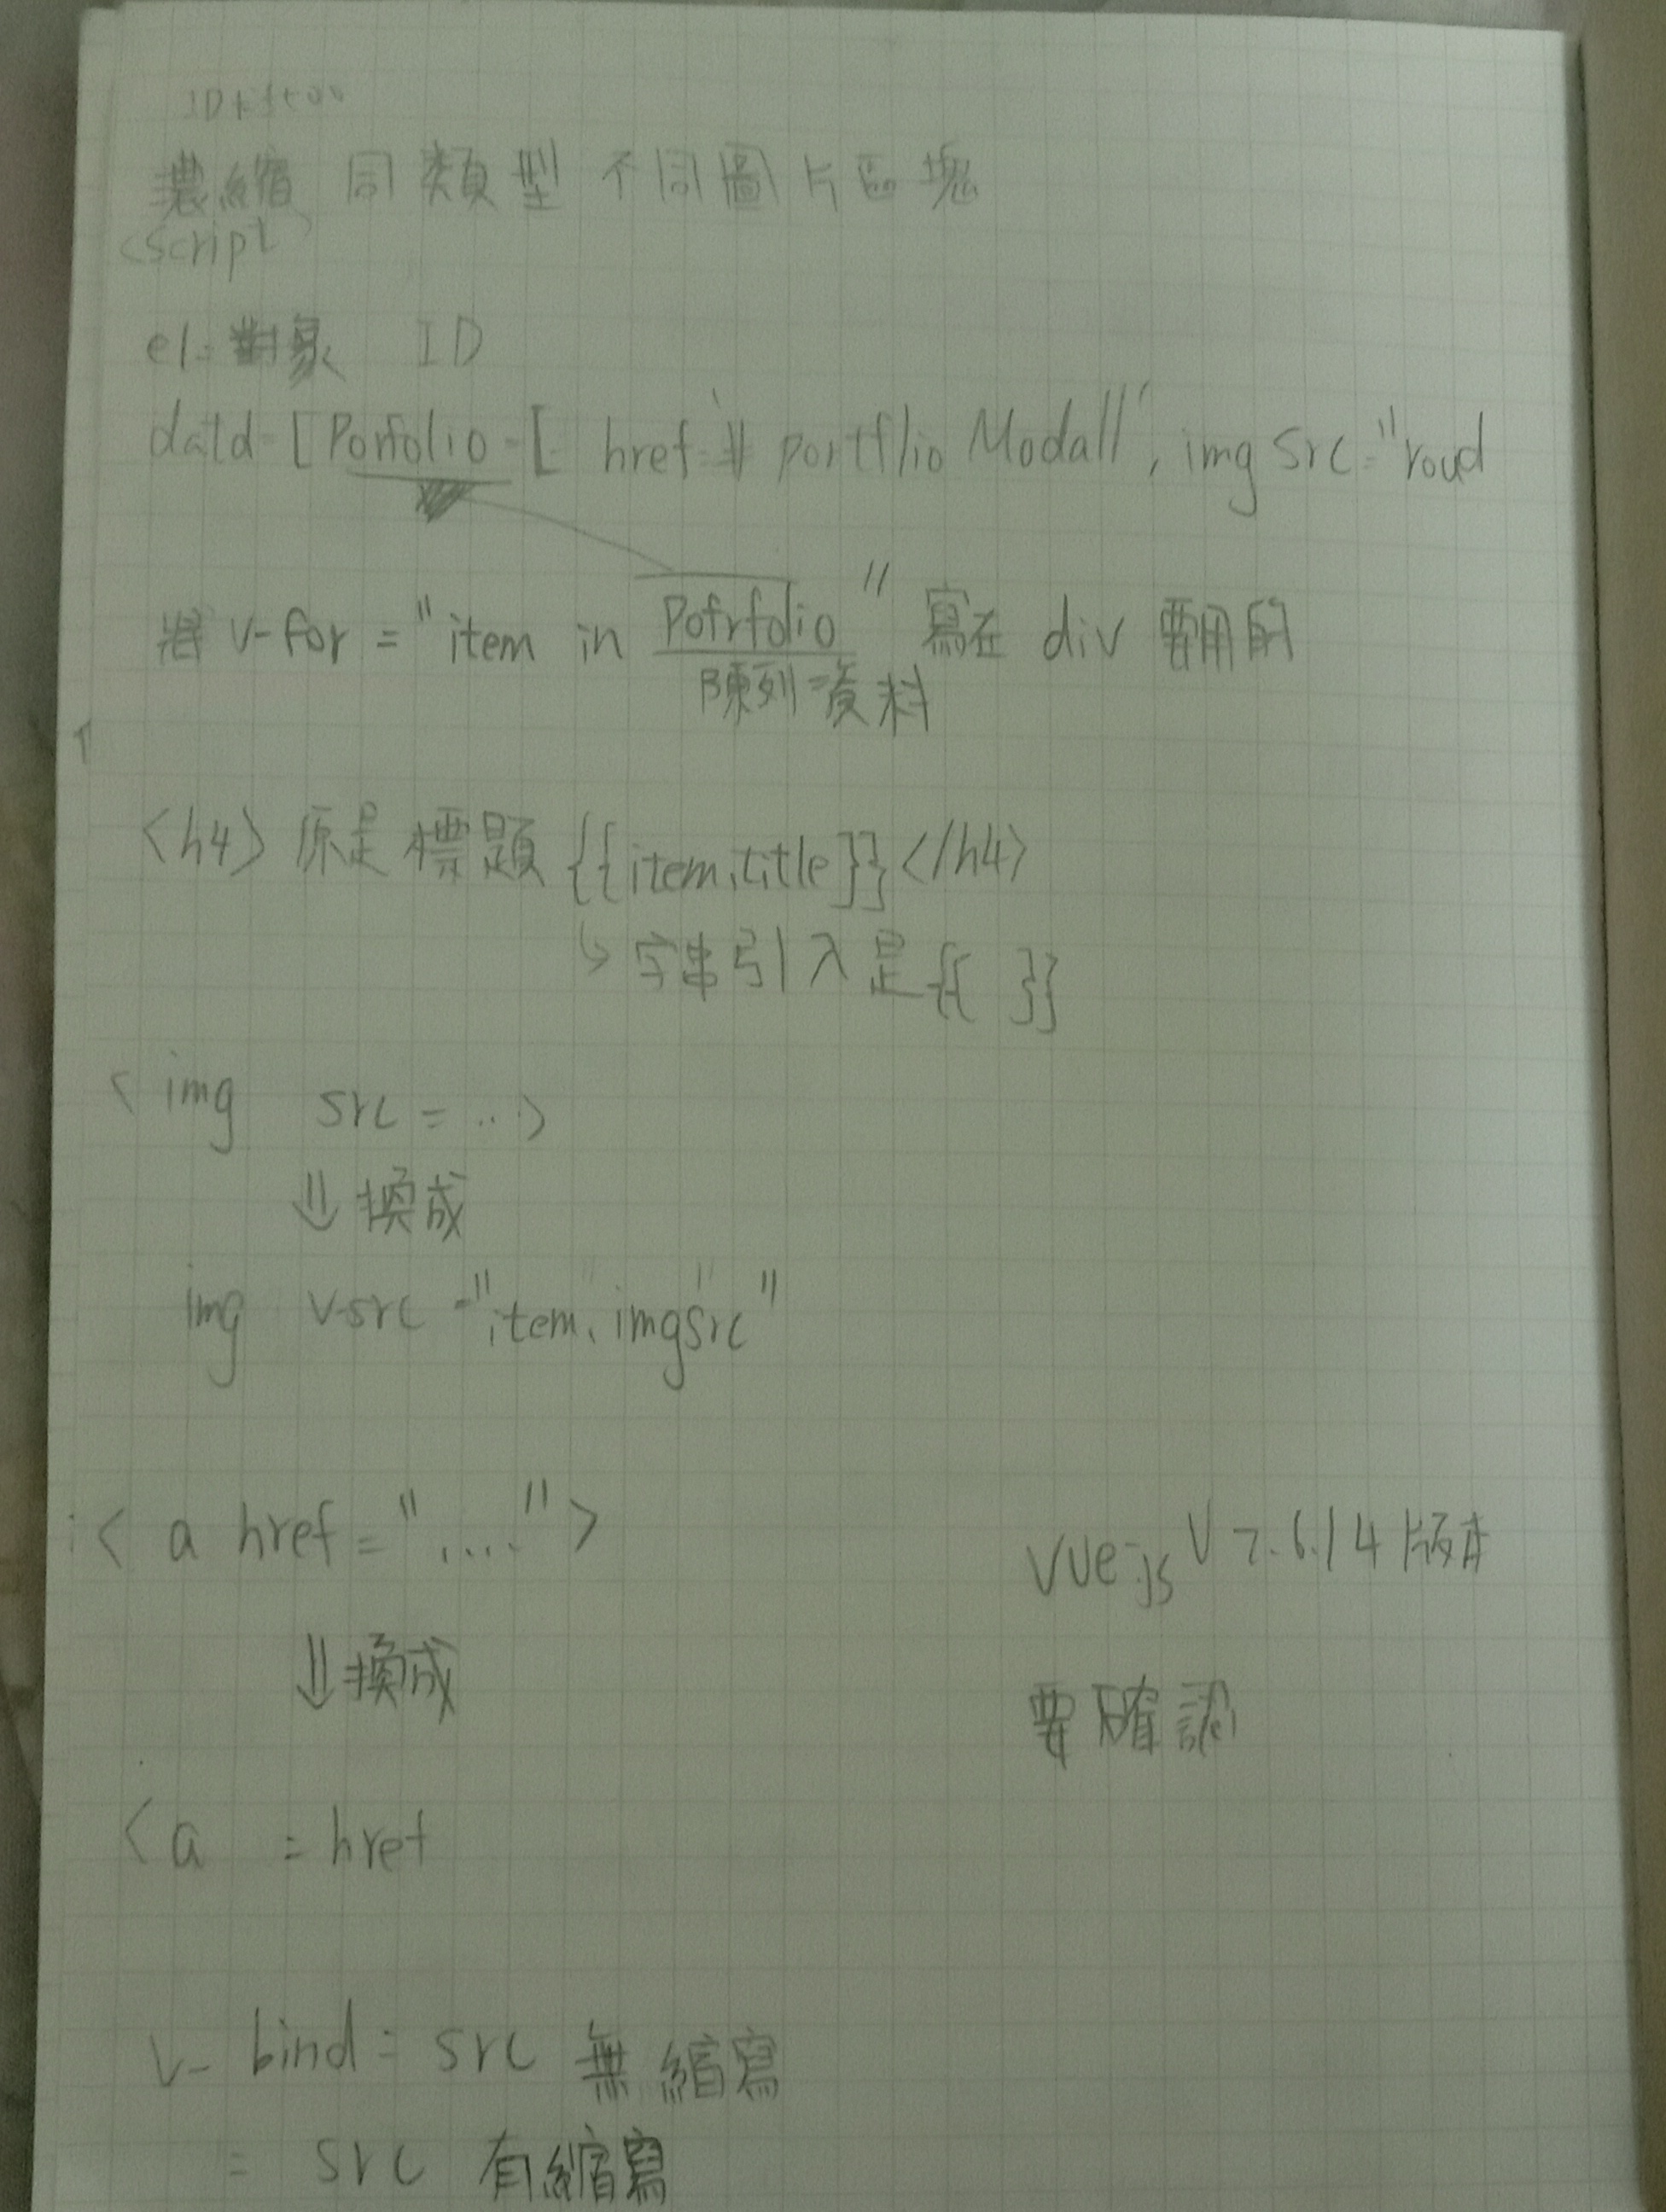 濃縮 同類型 不同圖片區塊
<script>
el: 對象 ID
data=[Porfolio=[ href:'# portflio Modall', img src="roud
將 v-for = "item in Pofrfolio" 寫在 div 要用的
陳列資料
<h4> 原是標題 {{item.title}}</h4>
↳ 字串引入是 {{ }}
<img src = ...>
⇓ 換成
img v-src="item.imgsrc"
<a href="....">
⇓ 換成
<a :href
vue.js v2.6.14 版本
要確認
v-bind: src 無縮寫
: src 有縮寫